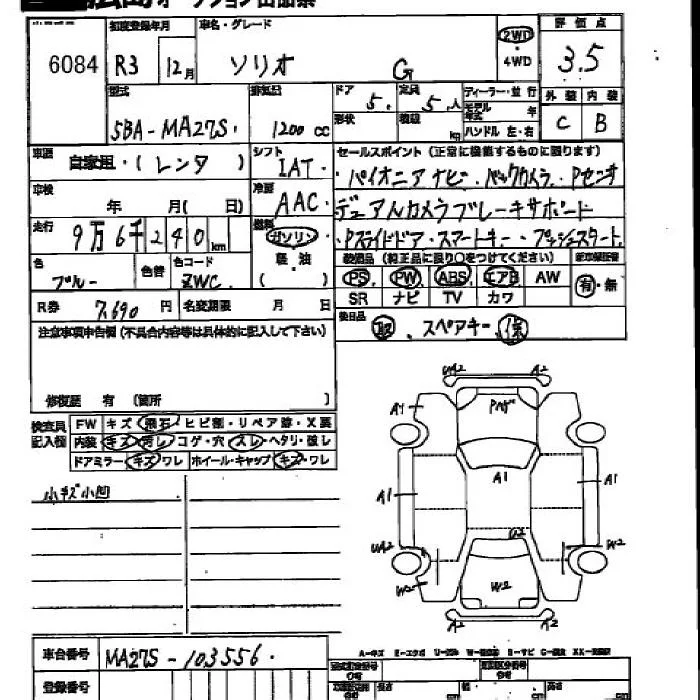 初度登録年月 車名・グレード 評価点
6084 R3 12月 ソリオ G 2WD ・ 4WD 3.5
型式 排気量 ドア 5. 定員 5.人 ディーラー・並行 外装 内装
5BA-MA27S. 1200cc 形状 積載 kg モデル年式 年 ハンドル 左・右 C B
車歴 自家用・(レンタ) シフト IAT. セールスポイント (正常に機能するものに限ります)
車検 年 月( 日) 冷房 AAC. パイオニアナビ・バックカメラ・Pセンサ
デュアルカメラブレーキサポート
走行 9万6千240km 燃料 ガソリン・軽油( ) ・Pスライドドア・スマートキー・プッシュスタート.
装備品 (純正品に限り○をつけてください) 新車保証書
色 ブルー 色替 色コード ZWC. PS PW ABS エアB AW 有・無
R券 7,690円 名変期限 月 日 SR ナビ TV カワ
注意事項申告欄 (不具合内容等は具体的に記入して下さい) 後日品 取. スペアキー・保
修復歴 有 (箇所 )
検査員記入欄 FW キズ・飛石・ヒビ割・リペア跡・X要
内装 キズ・汚レ・コゲ・穴・スレ・ヘタリ・破レ
ドアミラー キズ・ワレ ホイール・キャップ キズ・ワレ
小キズ小凹
UA2 A2
A1
A1
A1 A1
U2
UA2 W2
W2 W2 W2
A2 A2
車台番号 MA27S-103556.
登録番号